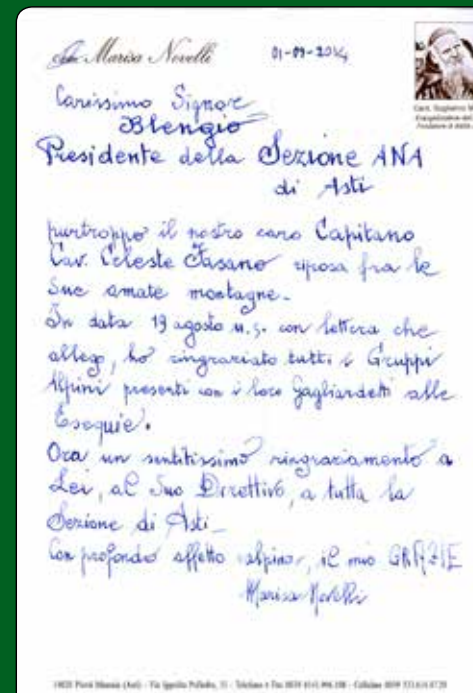 Marisa Novelli
01-09-2014
Carissimo Signor
Blengio
Presidente della Sezione ANA
di Asti
purtroppo il nostro caro Capitano
Cav. Celeste Fasano riposa fra le
Sue amate montagne.
In data 19 agosto u.s. con lettera che
allego, ho ringraziato tutti i Gruppi
Alpini presenti con i loro Gagliardetti alle
Esequie.
Ora un sentitissimo ringraziamento a
Lei, al Suo Direttivo, a tutta la
Sezione di Asti-
Con profondo affetto "alpino", il mio GRAZIE
Marisa Novelli
Card. Guglielmo